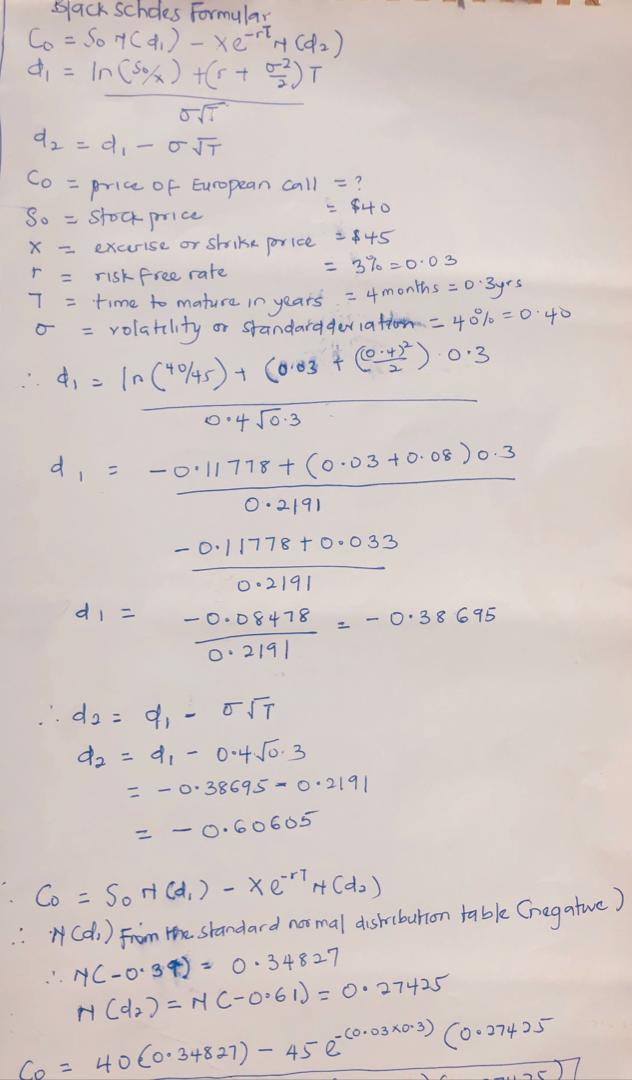 Black Scholes Formular
C₀ = S₀ N(d₁) - Xe^-rT N(d₂)
d₁ = ln(S₀/X) + (r + σ²/2)T
σ√T
d₂ = d₁ - σ√T
C₀ = price of European call = ?
S₀ = Stock price = $40
X = excerise or strike price = $45
r = risk free rate = 3% = 0.03
T = time to mature in years = 4 months = 0.3yrs
σ = volatility or standard deviation = 40% = 0.40
∴ d₁ = ln(40/45) + (0.03 + (0.4)²/2) 0.3
0.4√0.3
d₁ = -0.11778 + (0.03 + 0.08)0.3
0.2191
-0.11778 + 0.033
0.2191
d₁ = -0.08478 = -0.38695
0.2191
∴ d₂ = d₁ - σ√T
d₂ = d₁ - 0.4√0.3
= -0.38695 - 0.2191
= -0.60605
∴ C₀ = S₀ N(d₁) - Xe^-rT N(d₂)
∴ N(d₁) from the standard normal distribution table (negative)
∴ N(-0.39) = 0.34827
N(d₂) = N(-0.61) = 0.27425
C₀ = 40(0.34827) - 45e^-(0.03x0.3) (0.27425